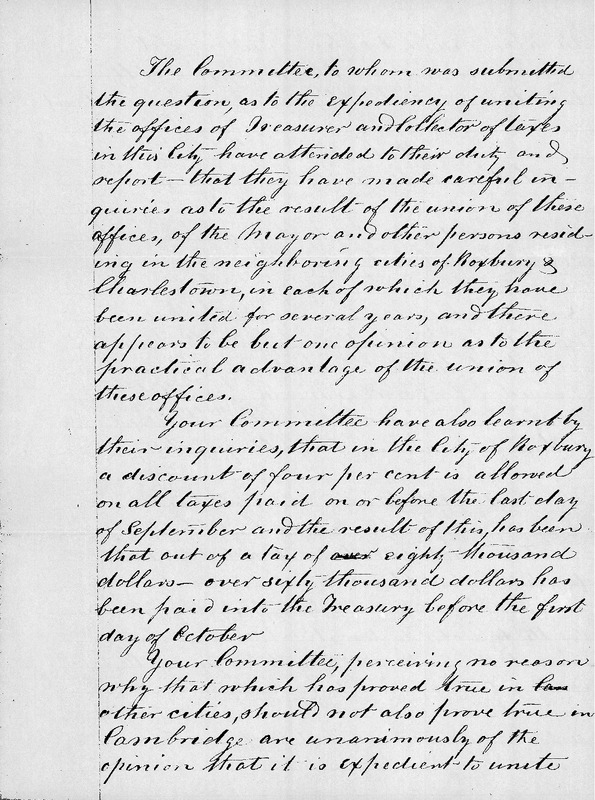 The Committee, to whom was submitted
the question, as to the expediency of uniting
the offices of Treasurer and Collector of taxes
in this City have attended to their duty and
report - that they have made careful in-
quiries as to the result of the union of these
offices, of the Mayor and other persons resid-
ing in the neighboring cities of Roxbury &
Charlestown, in each of which they have
been united for several years, and there
appears to be but one opinion as to the
practical advantage of the union of
these offices.
Your Committee have also learnt by
their inquiries, that in the City of Roxbury
a discount of four per cent is allowed
on all taxes paid on or before the last day
of September and the result of this, has been
that out of a tax of over eighty thousand
dollars - over sixty thousand dollars has
been paid into the Treasury before the first
day of October
Your Committee, perceiving no reason
why that which has proved true in
other cities, should not also prove true in
Cambridge are unanimously of the
opinion that it is expedient to unite